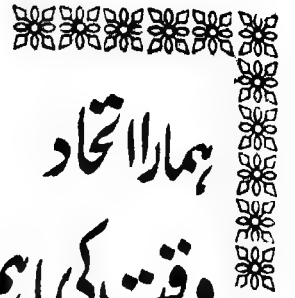 ہمارا اتحاد
وقت کی